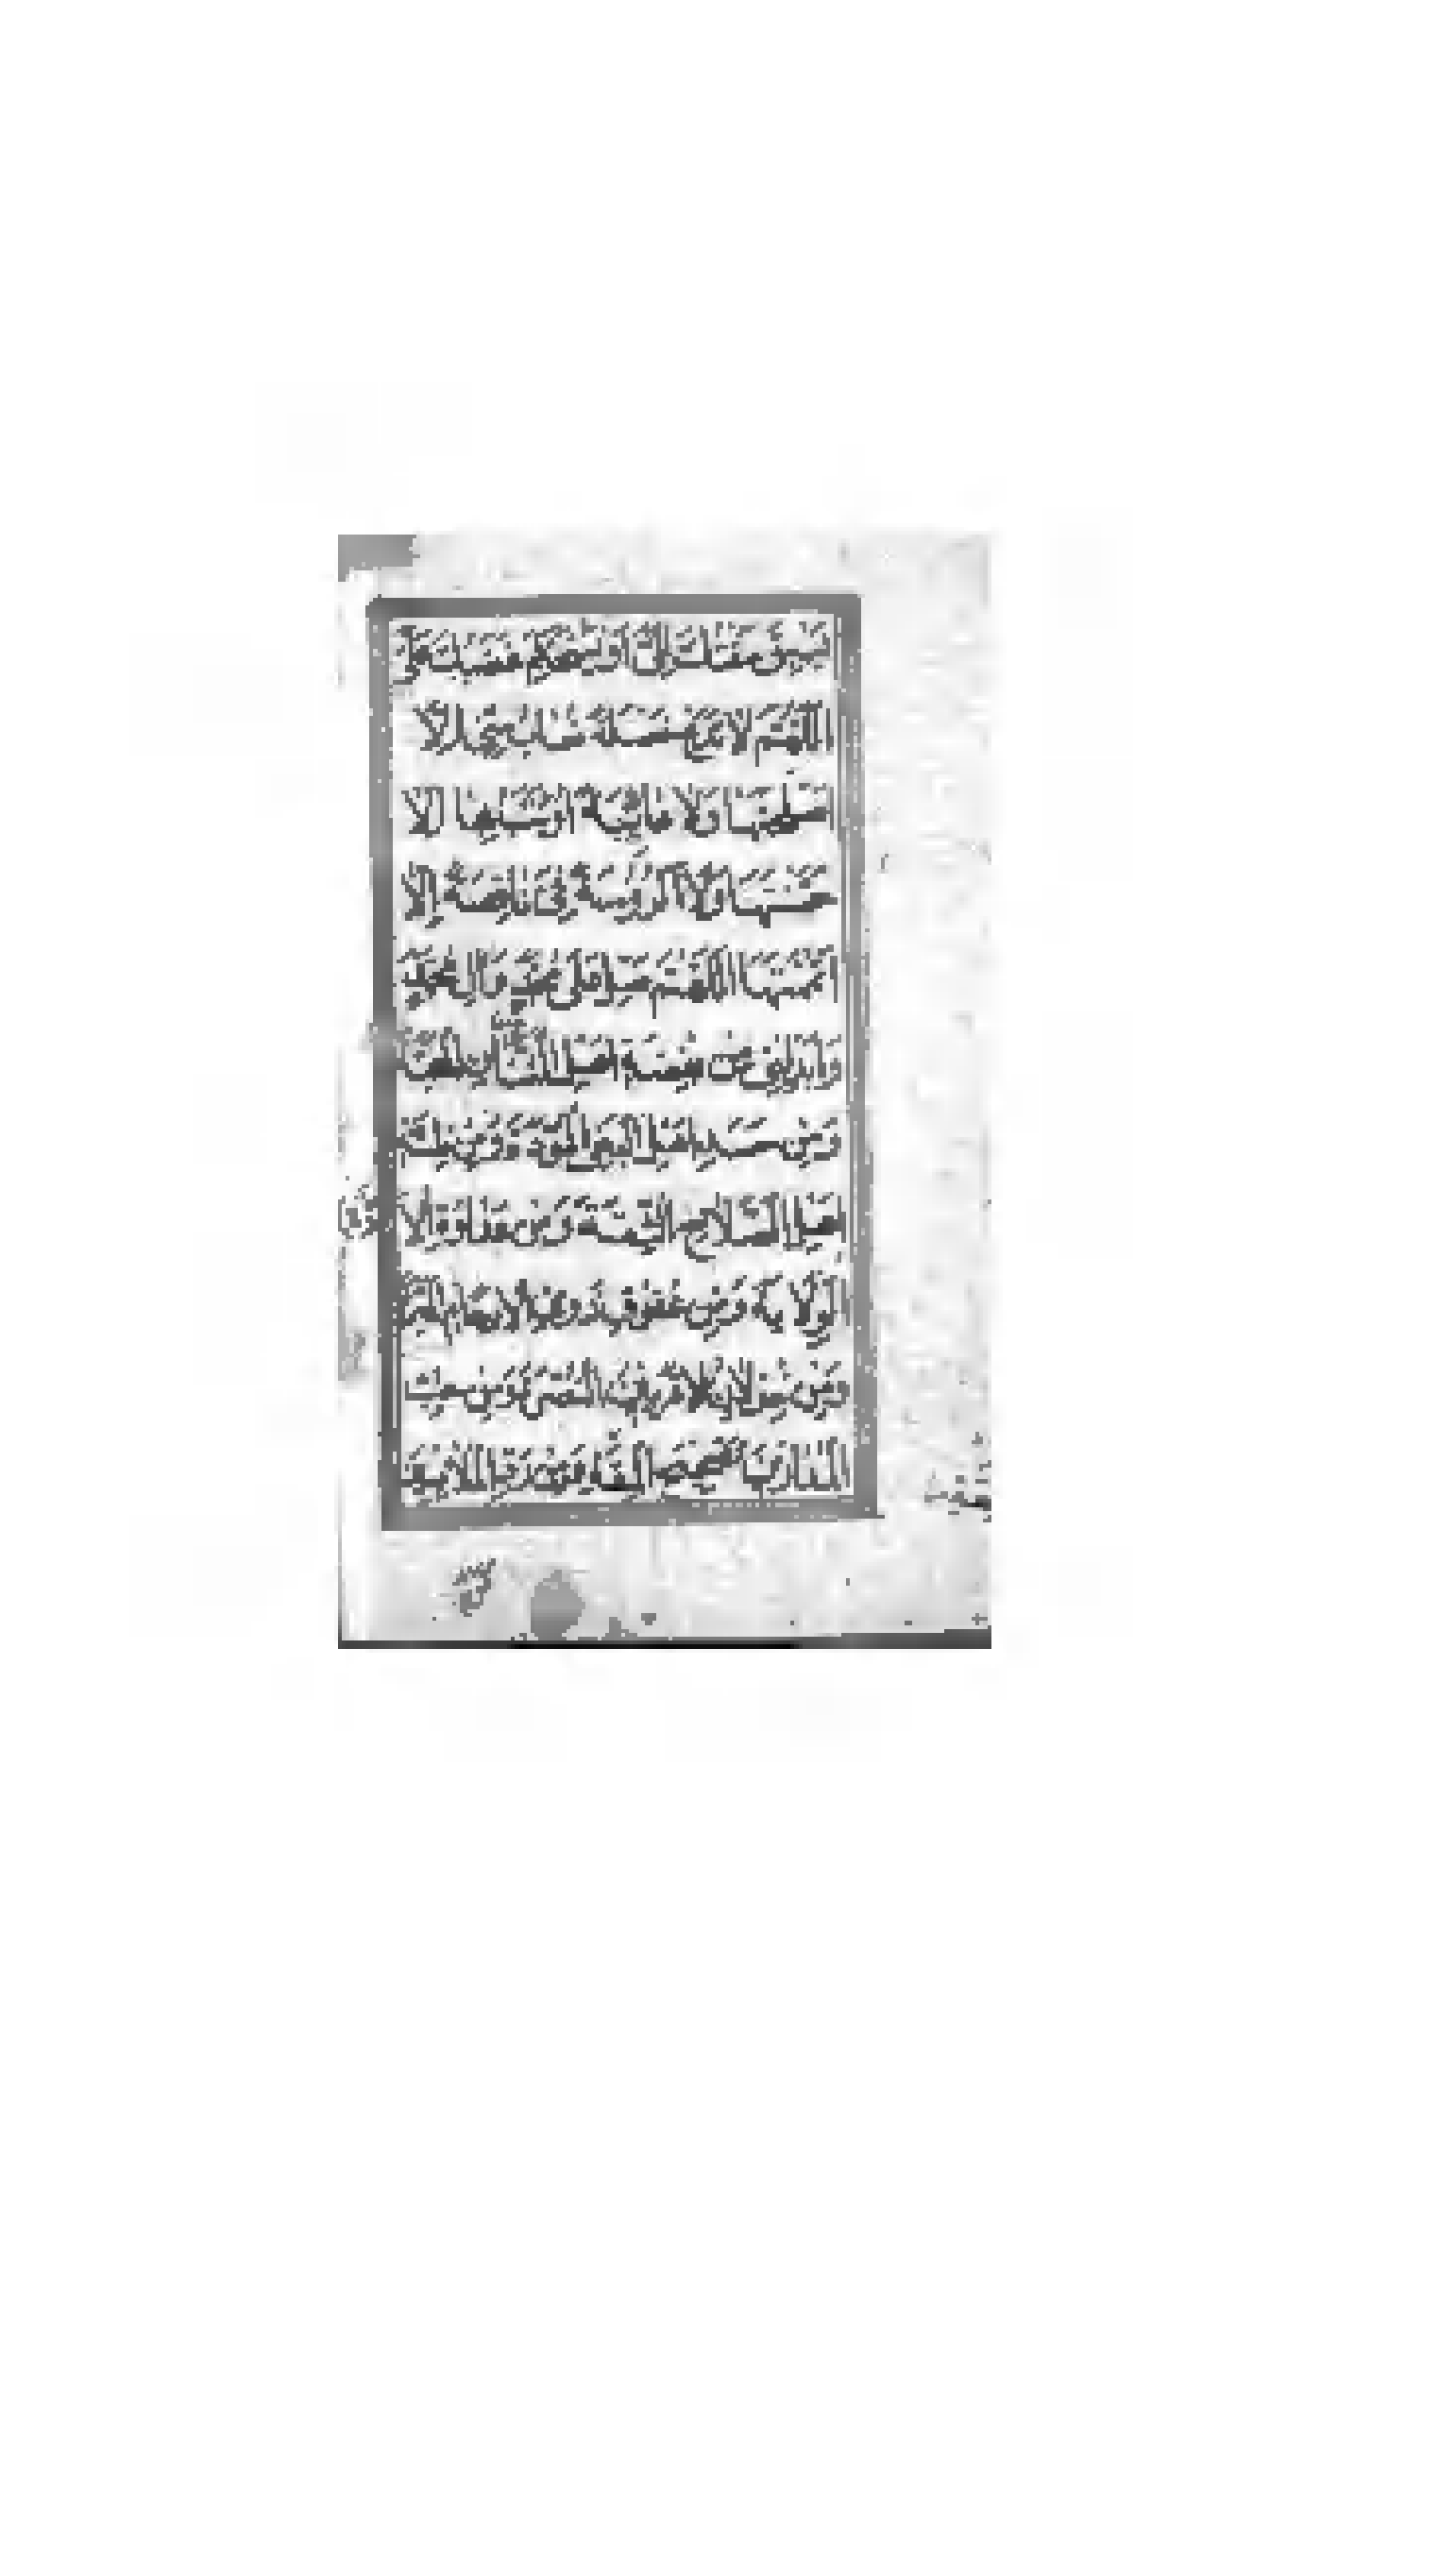 يسبق مقتك إلي أو يستحكم غضبك علي
اللهم لا تدع خصلة تعاب مني إلا
أصلحتها ولا عائبة أونب بها إلا
حسنتها ولا أكرومة في ناقصة إلا
أتممتها اللهم صل على محمد وآل محمد
وأبدلني من بغضة أهل الشنآن المحبة
ومن حسد أهل البغي المودة ومن ظنة
أهل الصلاح الثقة ومن عداوة الأدنين
الولاية ومن عقوق ذوي الأرحام المبرة
ومن خذلان الأقربين النصرة ومن حب
المدارين تصحيح المقة ومن رد الملابسين